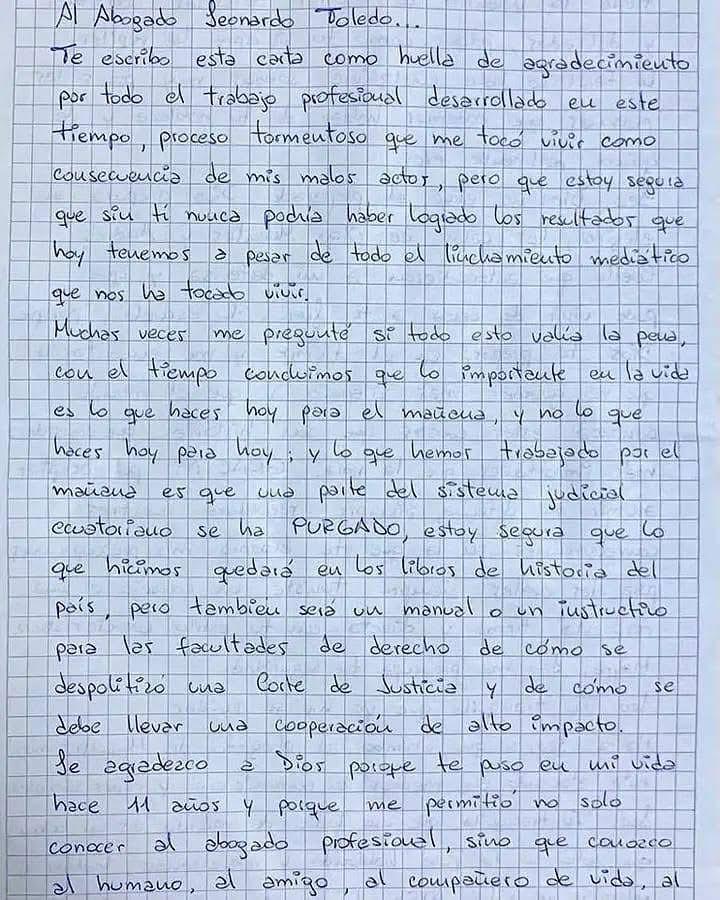 Al Abogado Leonardo Toledo...
Te escribo esta carta como huella de agradecimiento
por todo el trabajo profesional desarrollado en este
tiempo, proceso tormentoso que me tocó vivir como
consecuencia de mis malos actor, pero que estoy segura
que sin tí nunca podría haber logrado los resultados que
hoy tenemos a pesar de todo el linchamiento mediático
que nos ha tocado vivir.
Muchas veces me pregunté si todo esto valía la pena,
con el tiempo concluimos que lo importante en la vida
es lo que haces hoy para el mañana, y no lo que
haces hoy para hoy; y lo que hemos trabajado por el
mañana es que una parte del sistema judicial
ecuatoriano se ha PURGADO, estoy segura que lo
que hicimos quedará en los libros de historia del
país, pero tambien será un manual o un instructivo
para las facultades de derecho de cómo se
despolitizó una Corte de Justicia y de cómo se
debe llevar una cooperación de alto impacto.
Le agradezco a Dios porque te puso en mi vida
hace 11 años y porque me permitió no solo
conocer al abogado profesional, sino que conozco
al humano, al amigo, al compañero de vida, al